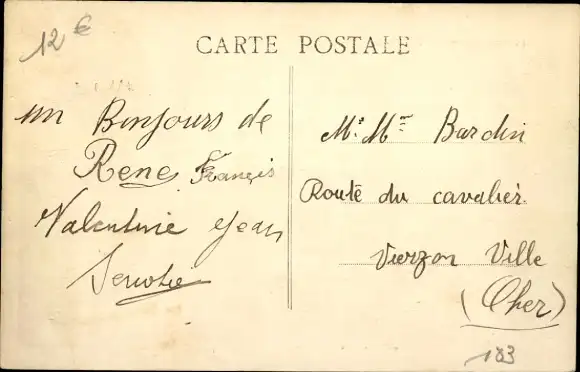 12 €
CARTE POSTALE
un Bonjours de
Rene Français
Valentine Jean
Mr Mme Bardin
Route du cavalier
Vierzon Ville
(Cher)
183